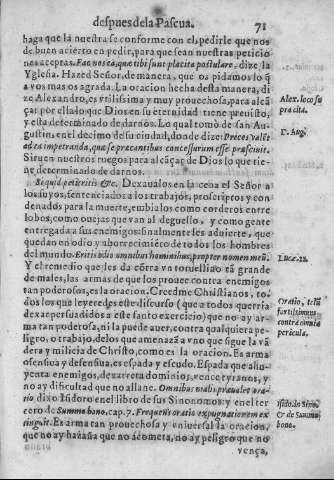 despues de la Pascua. 71
haga que la nuestra se conforme con el, pedirle que nos
de buen acierto en pedir, para que sean nuestras peticio
nes aceptas. Fac nos ea, que tibi sunt placita postulare, dize la
Yglesia. Hazed Señor, de manera, que os pidamos lo q̃
a vos mas os agrada. La oracion hecha desta manera, di
ze Alexandro, es vtilissima y muy prouechosa, para alcã
çar por ella lo que Dios en su eternidad tiene preuisto,
y està determinado de darnos. Lo qual tomò de san Au-
gustin, en el decimo de su ciudad, donde dize: Preces valẽt
ad ea impetranda, quæ se precantibus concessurum esse præsciuit.
Siruen nuestros ruegos para alcãçar de Dios lo que tie-
ne determinado de darnos.
Si quid petieritis &c. Dexaualos en la cena el Señor a
los suyos, sentenciados a los trabajos, proscriptos y con
denados para la muerte, embialos como corderos entre
lobos, como ouejas que van al deguello, y como gente
entregada a sus enemigos: finalmente les aduierte, que
quedan en odio y aborrecimiẽto de todos los hombres
del mundo. Eritis odio omnibus hominibus, propter nomen meũ.
Y el remedio que les da cõtra vn toruellino tã grande
de males, las armas de que los prouee contra enemigos
tan poderosos, es la oracion. Creedme Christianos, to-
dos los que leyeredes este discurso (que a todos querria
dexar persuadidos a este santo exercicio) que no ay ar-
ma tan poderosa, ni la puede auer, contra qualquiera pe-
ligro, o trabajo, de los que amenazã a vno que sigue la vã
dera y milicia de Christo, como es la oracion. Es arma
ofensiua y defensiua, es espada y escudo. Espada que ahu-
yenta enemigos, desbarata dominios, vence tyranos, y
no ay dificultad que no allane. Omnibus malis præualet ora-
tio dixo Isidoro en el libro de sus Sinonomos y en el ter
cero de Summo bono, cap. 7. Frequens oratio expugnationem ex
tinguit. Es arma tan prouechosa y vniuersal la oracion,
que no ay hazaña que no acometa, no ay peligro que no
vença,
Alex. loco su
pra cita.
D. Aug.
Luc. 21.
Oratio, telũ
fortissimum
contra omnia
pericula.
Isido. de Sino.
& de Summo
bono.